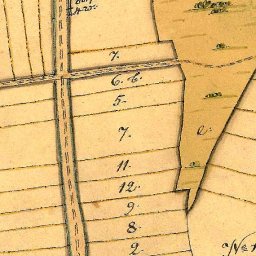 7.
6. 6.
5.
7.
e.
11.
12.
9.
8.
2.